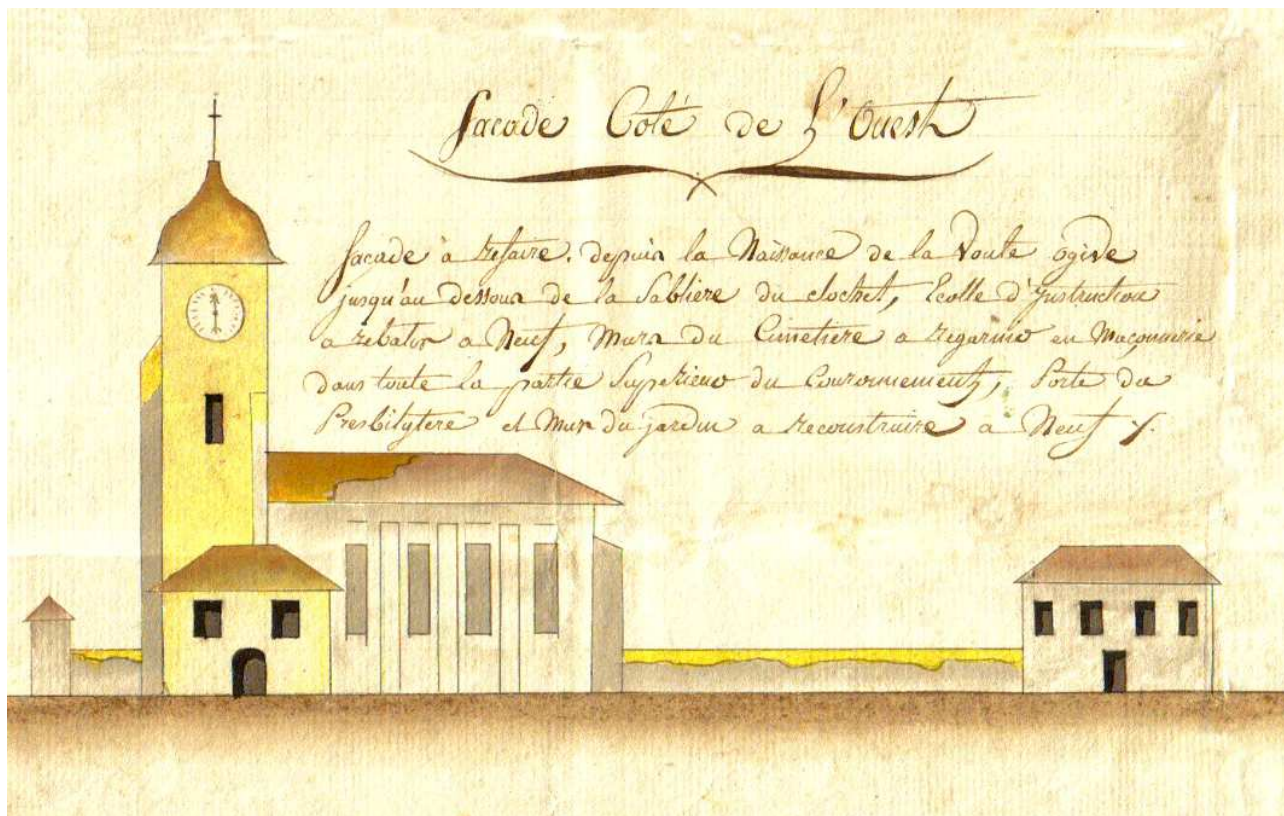 façade Coté de L'Ouest
façade à refaire. depuis la Naissance de la Voute ogive
jusqu'au dessous de la Sabliere du clochet, Ecolle d'Instruction
a rebatir a Neuf, Murs du Cimetiere a regarnir en Maçonnerie
dans toute la partie Superieur du Couronnement, Porte du
Presbilytere et Mur du jardin a reconstruire a Neuf